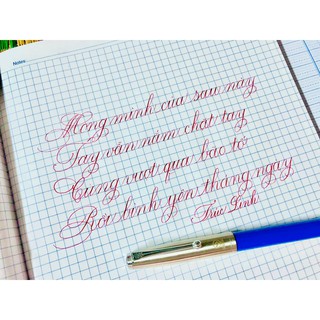 Notes
Mong mình của sau này
Tay vẫn nắm chặt tay
Cùng vượt qua bão tố
Rồi bình yên tháng ngày
Trúc Linh